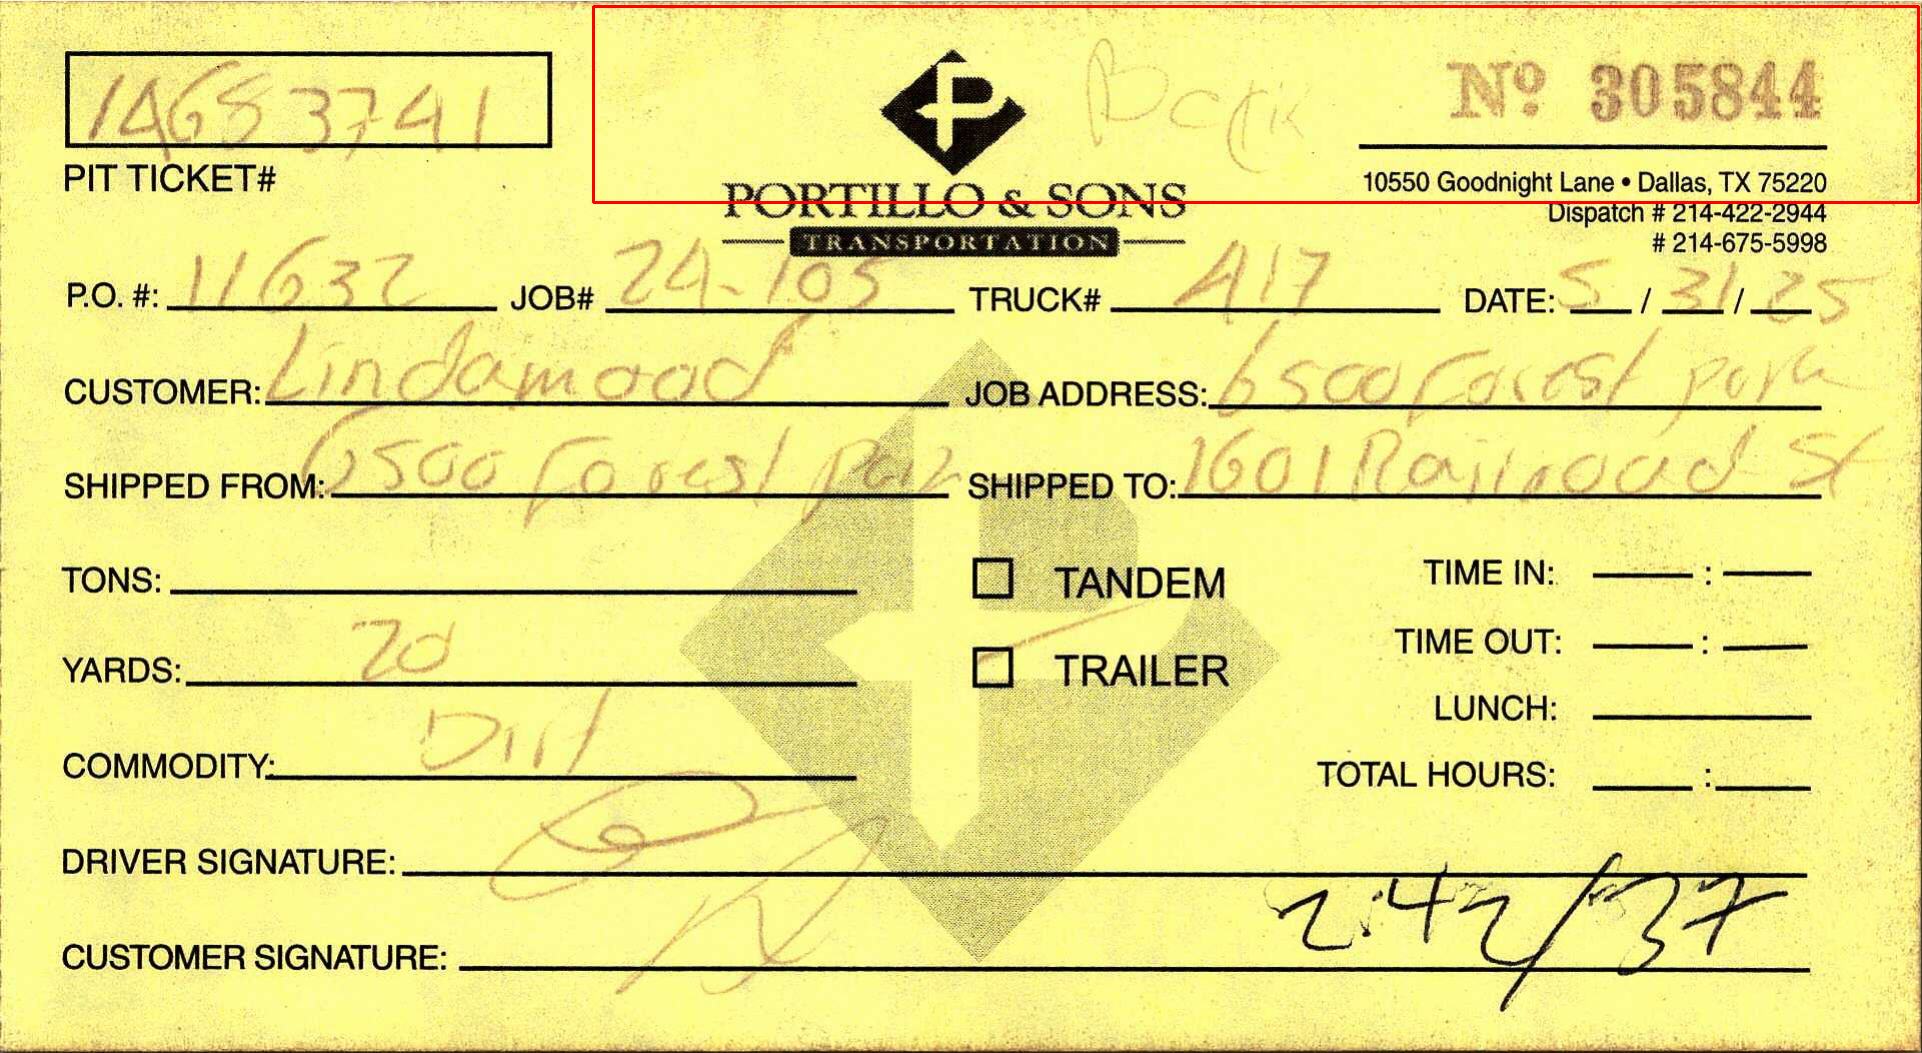 14683741
PIT TICKET#
Nº 305844
PORTILLO & SONS
TRANSPORTATION
10550 Goodnight Lane • Dallas, TX 75220
Dispatch # 214-422-2944
# 214-675-5998
P.O. #: 11632 JOB# 24-105 TRUCK# A17 DATE: 5 / 31 / 25
CUSTOMER: Lindamood JOB ADDRESS: 6500 Forest park
SHIPPED FROM: 6500 Forest park SHIPPED TO: 1601 Railroad St
TONS: TANDEM TIME IN: :
YARDS: 20 TRAILER TIME OUT: :
LUNCH:
COMMODITY: Dirt TOTAL HOURS: :
DRIVER SIGNATURE:
CUSTOMER SIGNATURE: 2:42/37